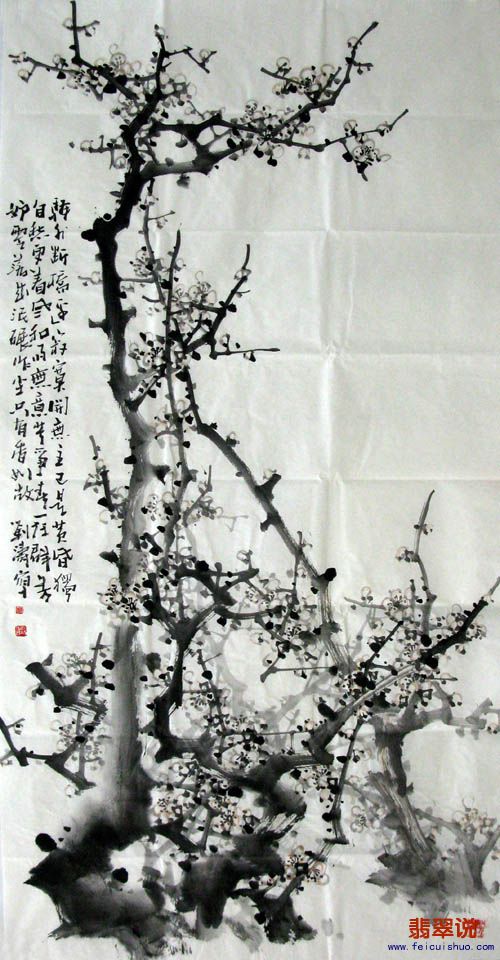 驿外断橋边寂寞開無主已是黄昏獨
自愁更着風和雨無意苦争春一任群芳
妒零落成泥碾作尘只有香如故
翡翠说
www.feicuishuo.com